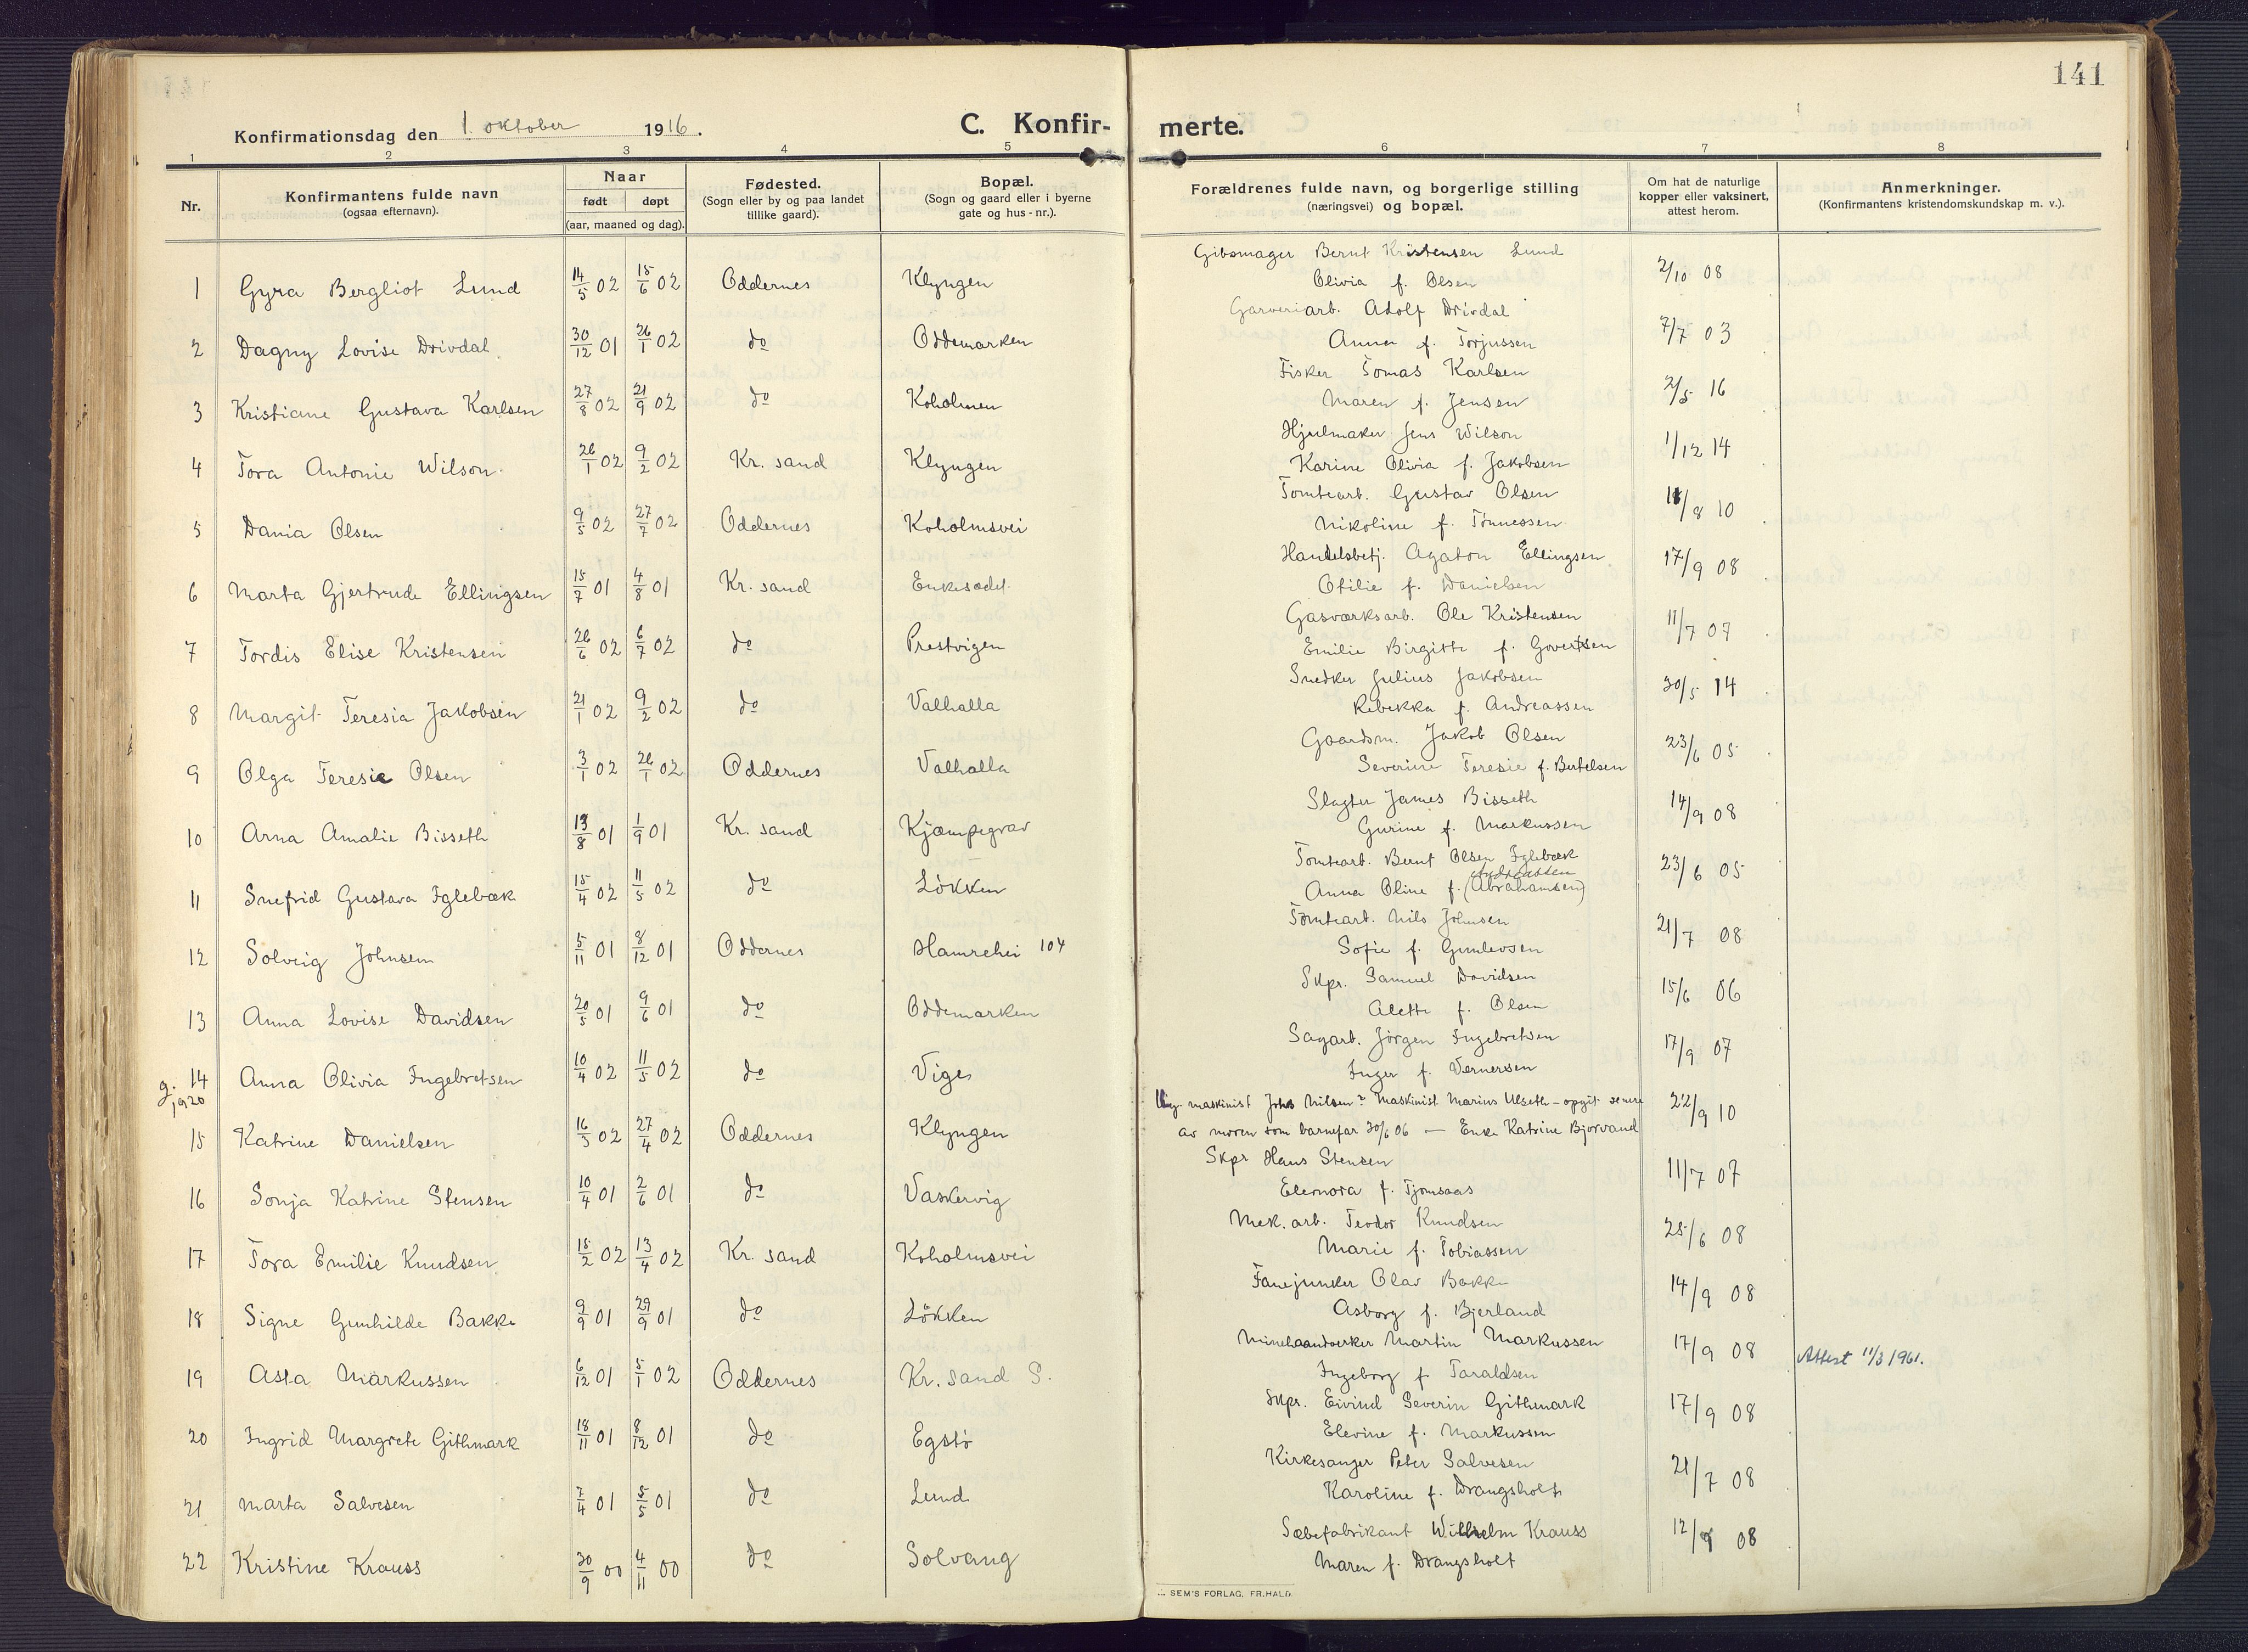 141
Konfirmationsdag den 1. oktober 1916.
C. Konfir-merte.
1 2 3 4 5 6 7 8
Nr.
Konfirmantens fulde navn
(ogsaa efternavn).
Naar
født døpt
(aar, maaned og dag).
Fødested.
(Sogn eller by og paa landet
tillike gaard).
Bopæl.
(Sogn og gaard eller i byerne
gate og hus-nr.).
Forældrenes fulde navn, og borgerlige stilling
(næringsvei) og bopæl.
Om hat de naturlige
kopper eller vaksinert,
attest herom.
Anmerkninger.
(Konfirmantens kristendomskundskap m. v.).
Gibsmager Bernt Kristensen Lund
1 Gyra Bergliot Lund 14/5 02 15/6 02 Oddernes Klyngen Olivia f. Olsen 2/10 08
Garveriarb. Adolf Drivdal
2 Dagny Lovise Drivdal 30/12 01 26/1 02 do Oddemarken Anna f. Torjussen 7/7 03
Fisker Tomas Karlsen
3 Kristiane Gustava Karlsen 27/8 02 21/9 02 do Koholmen Maren f. Jensen 2/5 16
Hjulmaker Jens Wilson
4 Tora Antonie Wilson 26/1 02 9/2 02 Kr. sand Klyngen Karine Olivia f. Jakobsen 1/12 14
Tomtearb. Gustav Olsen
5 Dania Olsen 9/5 02 27/7 02 Oddernes Koholmsvei Nikoline f. Tønnessen 18/8 10
Handelsbetj. Agaton Ellingsen
6 Marta Gjertrude Ellingsen 15/7 01 4/8 01 Kr. sand Enkesædet Otilie f. Danielsen 17/9 08
Gasværksarb. Ole Kristensen
7 Tordis Elise Kristensen 26/6 02 6/7 02 do Prestvigen Emilie Birgitte f. Govertsen 11/7 07
Snedker Julius Jakobsen
8 Margit Teresia Jakobsen 21/1 02 9/2 02 do Valhalla Rebekka f. Andreassen 30/5 14
Gaardsm. Jakob Olsen
9 Olga Teresie Olsen 3/1 02 26/1 02 Oddernes Valhalla Severine Teresie f. Bertelsen 23/6 05
Slagter James Bisseth
10 Arna Amalie Bisseth 13/8 01 1/9 01 Kr. sand Kjæmpegrav Gurine f. Markussen 14/9 08
Tomtearb. Bernt Olsen Iglebæk
11 Snefrid Gustava Iglebæk 15/4 02 11/5 02 do Løkken Anna Oline f. (Abrahamsen) Andreassen 23/6 05
Tomtearb. Nils Johnsen
12 Solveig Johnsen 5/11 01 8/12 01 Oddernes Hamrehei 104 Sofie f. Gunlevsen 21/7 08
Skpr. Samuel Davidsen
13 Anna Lovise Davidsen 20/5 01 9/6 01 do Oddemarken Alette f. Olsen 15/6 06
Sagarb. Jørgen Ingebretsen
g. 1920 14 Anna Olivia Ingebretsen 10/4 02 11/5 02 do Vige Inger f. Vernersen 17/9 07
Ug. maskinist Johs Nilsen? Maskinist Marius Ulseth – opgit senere
15 Katrine Danielsen 16/3 02 27/4 02 Oddernes Klyngen av moren som barnefar 30/6 06 — Enke Katrine Bjorvand 22/9 10
Skpr Hans Stensen
16 Sonja Katrine Stensen 10/4 01 2/6 01 do Vaskervig Eleonora f. Tjomsaas 11/7 07
Mek. arb. Teodor Knudsen
17 Tora Emilie Knudsen 15/2 02 13/4 02 Kr. sand Koholmsvei Marie f. Tobiassen 25/6 08
Fanejunker Olav Bakke
18 Signe Gunhilde Bakke 9/9 01 29/9 01 do Løkken Asborg f. Bjerland 14/9 08
Minehaandverker Martin Markussen
19 Asta Markussen 6/12 01 5/1 02 Oddernes Kr. sand S. Ingeborg f Taraldsen 17/9 08 Attest 11/3 1961.
Skpr. Eivind Severin Githmark
20 Ingrid Margrete Githmark 18/11 01 8/12 01 do Egstø Elevine f. Markussen 17/9 08
Kirkesanger Peter Salvesen
21 Marta Salvesen 7/4 01 5/5 01 do Lund Karoline f. Drangsholt 21/7 08
Sæbefabrikant Wilhelm Krauss
22 Kristine Krauss 30/9 00 4/11 00 do Solvang Maren f. Drangsholt 12/9 08
SEM'S FORLAG, FR.HALD.